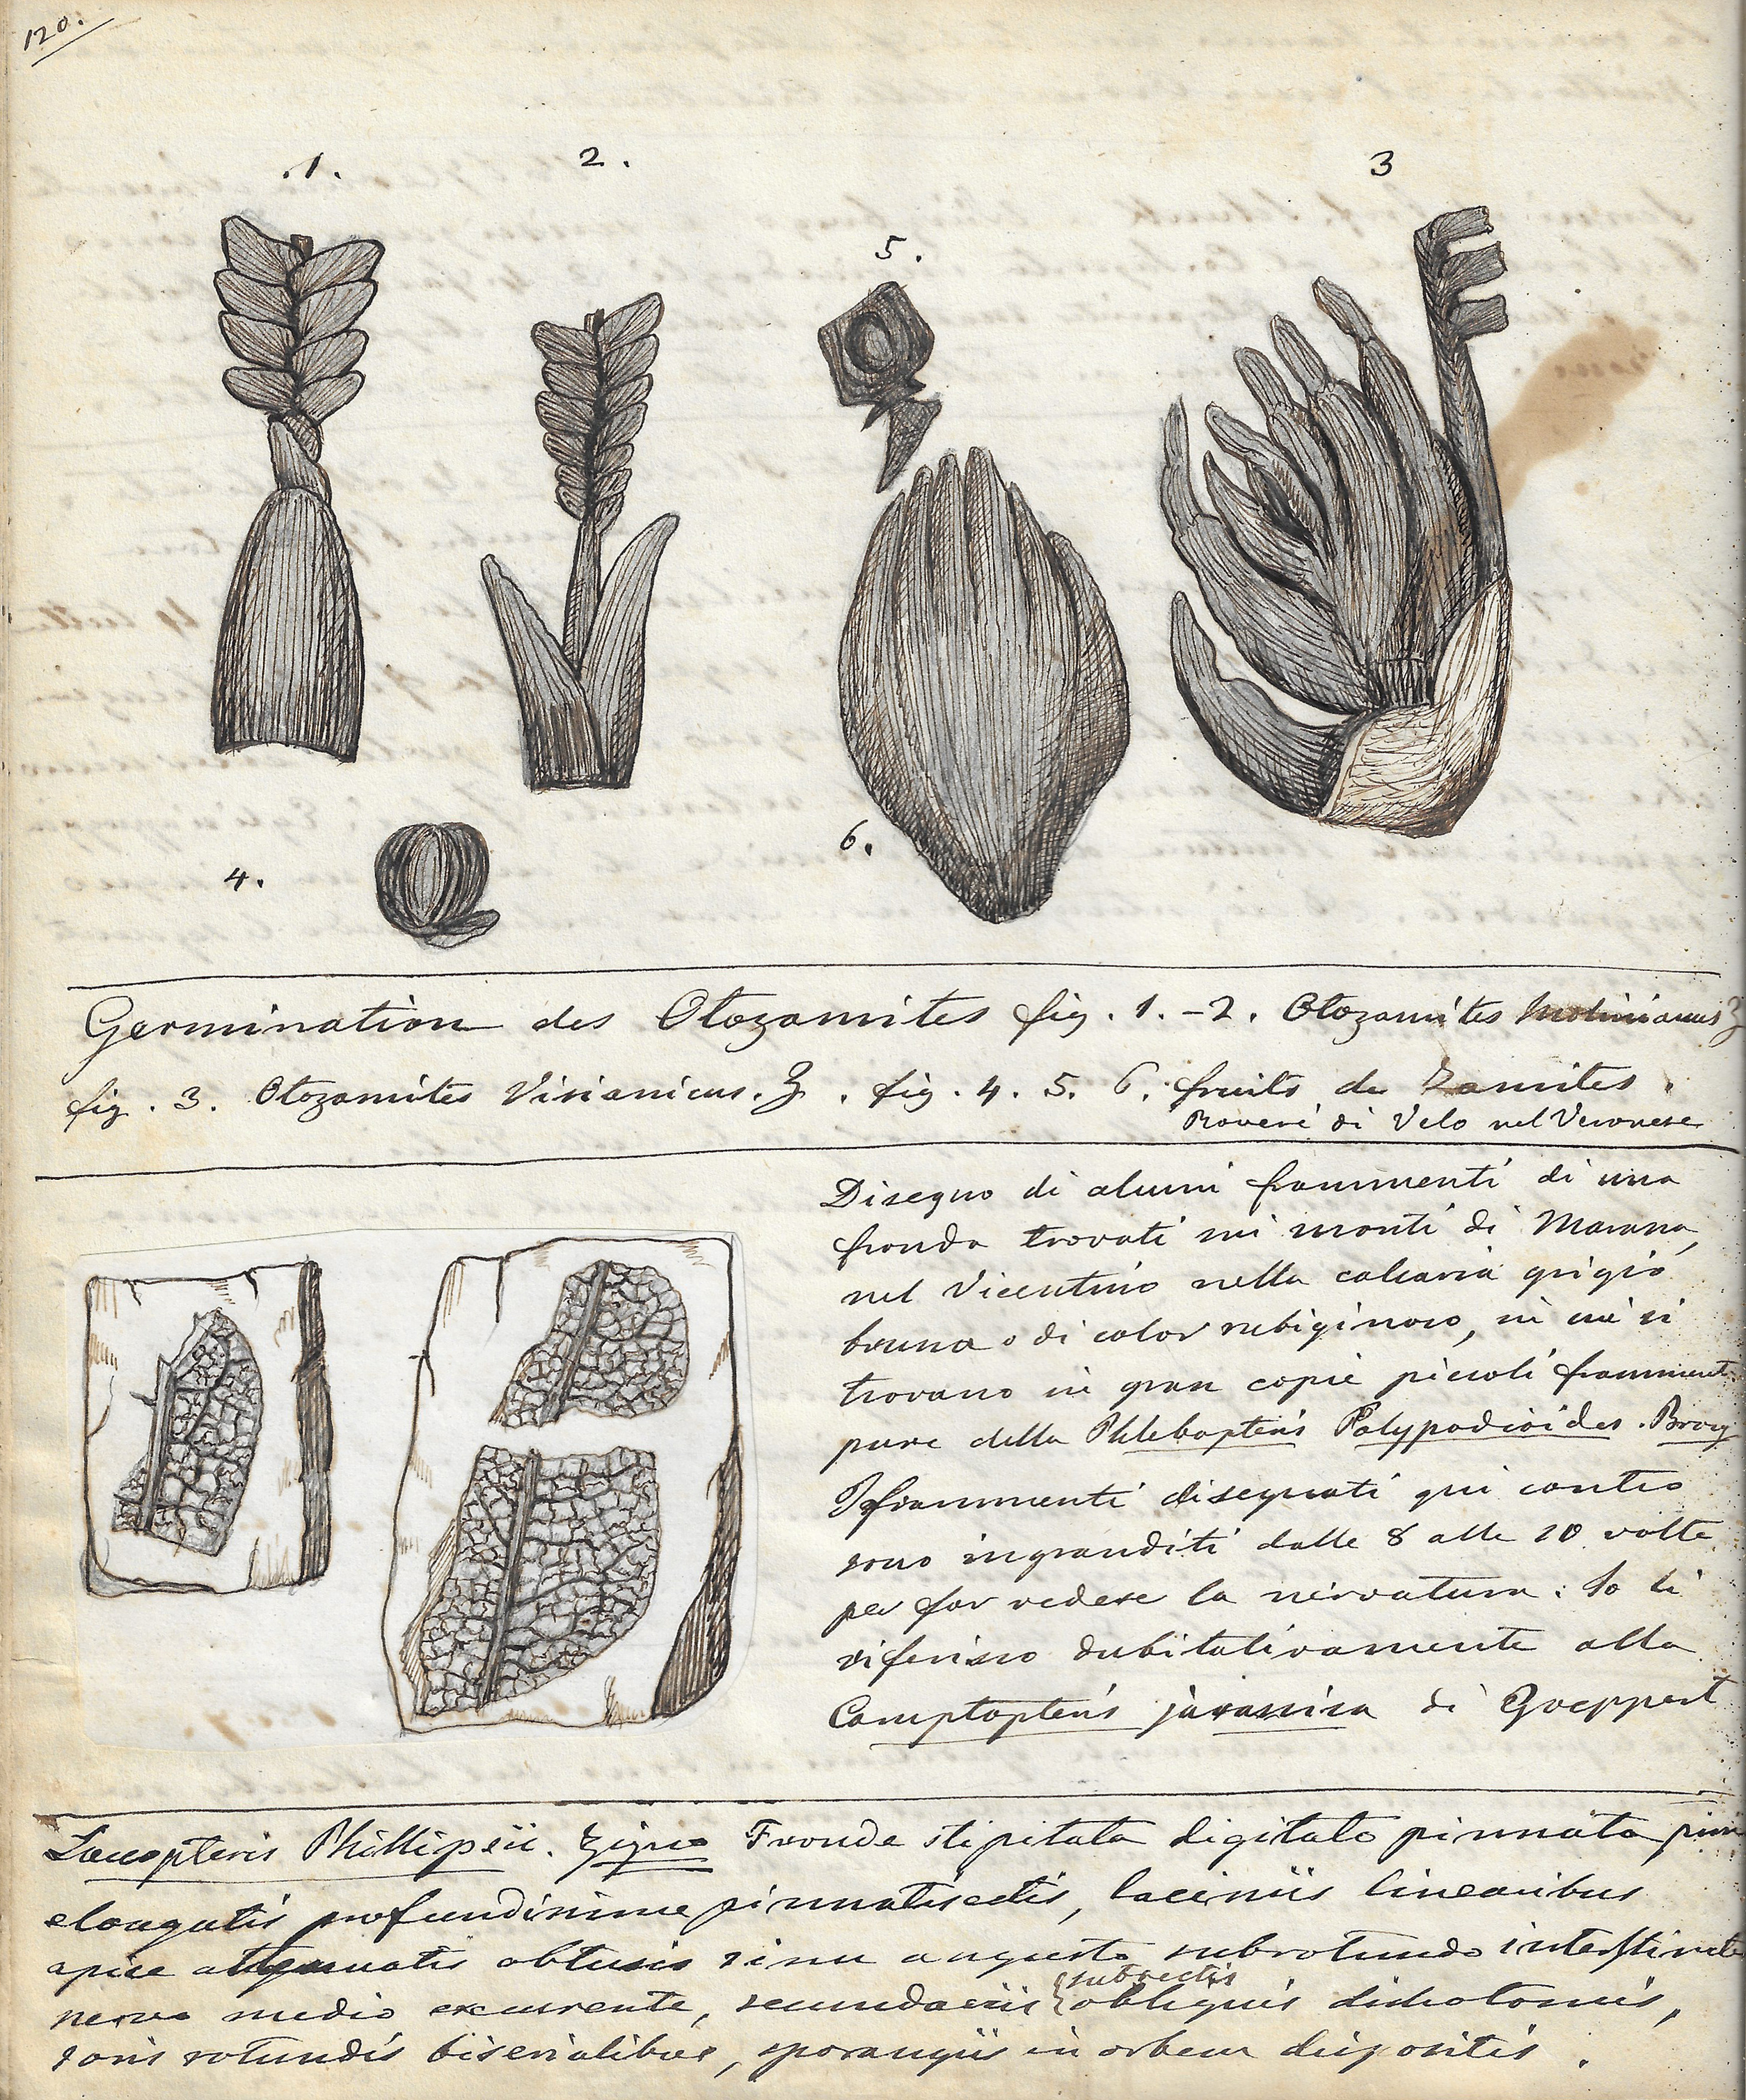 120.
.1.
2.
3
5.
6.
4.
Germination des Otozamites fig. 1.-2. Otozamites Molinianus Z
fig. 3. Otozamites Visianicus. Z. fig. 4. 5. 6. fruits de Zamites.
Roveré di Velo nel Veronese
Disegno di alcuni frammenti di una
fronda trovati nei monti di Marana,
nel Vicentino nella calcaria grigio
bruna o di color rubiginoso, in cui si
trovano in gran copia piccoli frammenti
pure della Phlebopteris Polypodioides. Brong
I frammenti disegnati qui contro
sono ingranditi dalle 8 alle 10 volte
per far vedere la nervatura. Io li
riferisco dubitativamente alla
Camptopteris jurassica di Goeppert
Laccopteris Phillipsii. Zigno Fronde stipitata digitato pinnata
elongatis profundissime pinnatisectis, laciniis linearibus
apice attenuatis obtusis sinu angusto subrotundo interstincte
subrectis
nervo medio excurrente, secundariis obliquis dichotomis,
soris rotundis biserialibus, sporangiis in orbem dispositis.